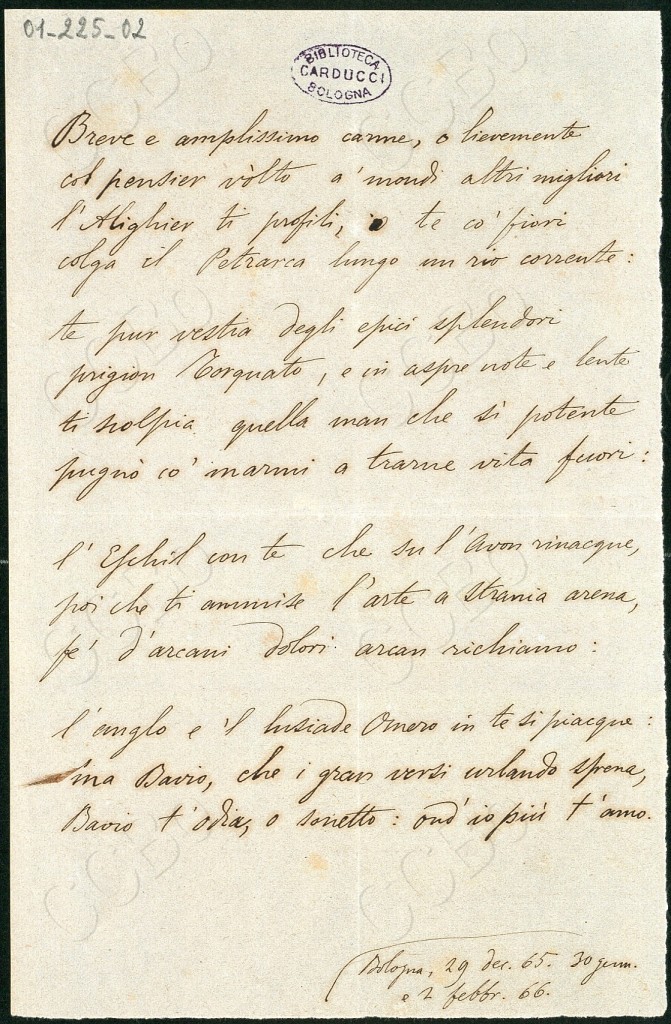 01-225-02
BIBLIOTECA
CARDUCCI
BOLOGNA
Breve e amplissimo carme, o lievemente
col pensier vòlto a' mondi altri migliori
l'Alighier ti profili, o te co' fiori
colga il Petrarca lungo un rio corrente:
te pur vestia degli epici splendori
prigion Torquato, e in aspre note e lente
ti scolpia quella man che sì potente
pugnò co' marmi a trarne vita fuori:
l'Eschil con te che su l'Avon rinacque,
poi che ti ammise l'arte a strania arena,
fe' d'arcani dolori arcan richiamo:
l'anglo e 'l lusiade Omero in te si piacque:
ma Bavio, che i gran versi urlando sfrena,
Bavio t'odia, o sonetto: ond'io più t'amo.
Bologna, 29 dec. 65. 30 genn.
e 2 febbr. 66.
CCBo